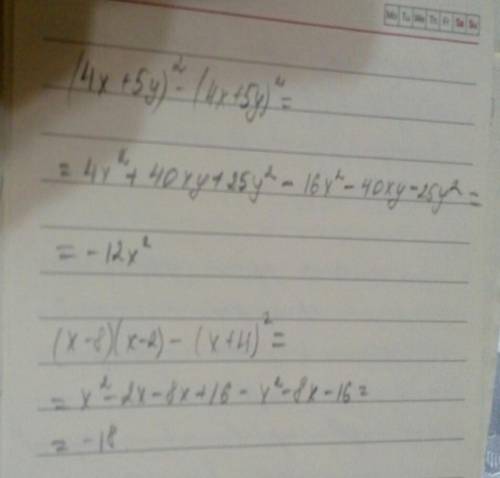 Mo Tu We Th Fr Sa Su
(4x+5y)²-(4x+5y)²=
=4x²+40xy+25y²-16x²-40xy-25y²=
=-12x²
(x-8)(x-2)-(x+4)²=
=x²-2x-8x+16-x²-8x-16=
=-18